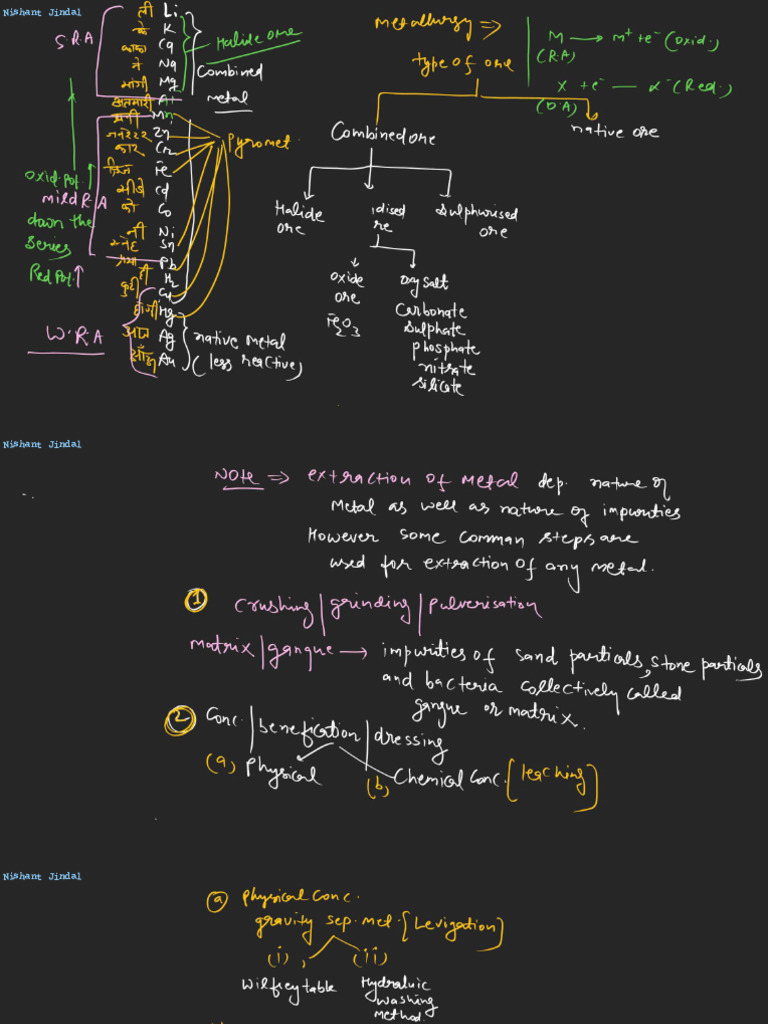 Nishant Jindal
Metallurgy ⇒
type of ore
M → M⁺ + e⁻ (Oxid.)
(R.A)
X + e⁻ — X⁻ (Red.)
(O.A)
Combined ore
native ore
Halide ore
idised re
Sulphurised ore
Oxide ore
Fe2O3
Oxy salt
Carbonate
Sulphate
phosphate
nitrate
silicate
S.R.A
ली Li
के K
काका Ca
ने Na
मांगी Mg
अलमारी Al
Mn
Zn
कार Cr
Fe
Cd
को Co
नी Ni
Sn
Pb
H2
Cu
Hg
Ag
Au
Halide ore
Combined
metal
Pyromet.
Oxid. Pot. ↑
mild R.A
down the
Series
Red Pot. ↑
W.R.A
native metal
(less reactive)
Nishant Jindal
NOTE ⇒ extraction of metal dep. nature of
Metal as well as nature of impurities
However some common steps are
used for extraction of any metal.
① Crushing | grinding | pulverisation
matrix | gangue → impurities of sand particals, stone particals
and bacteria collectively called
gangue or matrix.
② Conc. | benefication | dressing
(a) Physical
(b) Chemical Conc. [leaching]
Nishant Jindal
ⓐ Physical Conc.
gravity sep. met. {Levigation}
(i) (ii)
Wilfley table
Hydraulic
washing
method.